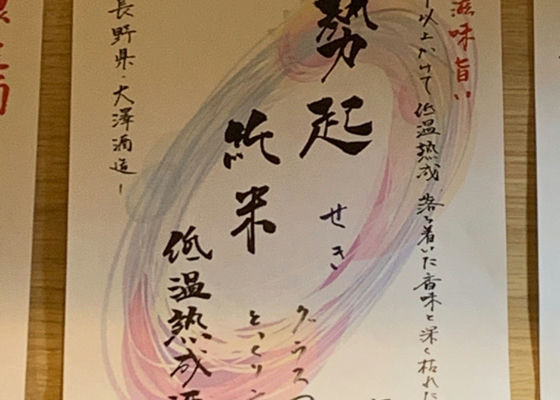 滋味旨い
以上かけて低温熟成 落ち着いた香味と深く枯れた
勢起
せき
グラス
純米
とっくり
低温熟成酒
長野県・大澤酒造